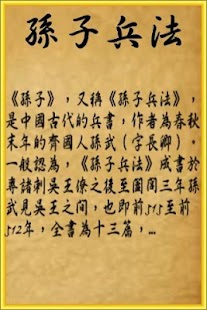 孫子兵法
《孫子》，又稱《孫子兵法》，
是中國古代的兵書，作者為春秋
末年的齊國人孫武（字長卿）。
一般認為，《孫子兵法》成書於
專諸刺吳王僚之後至闔閭三年孫
武見吳王之間，也即前515至前
512年，全書為十三篇，...